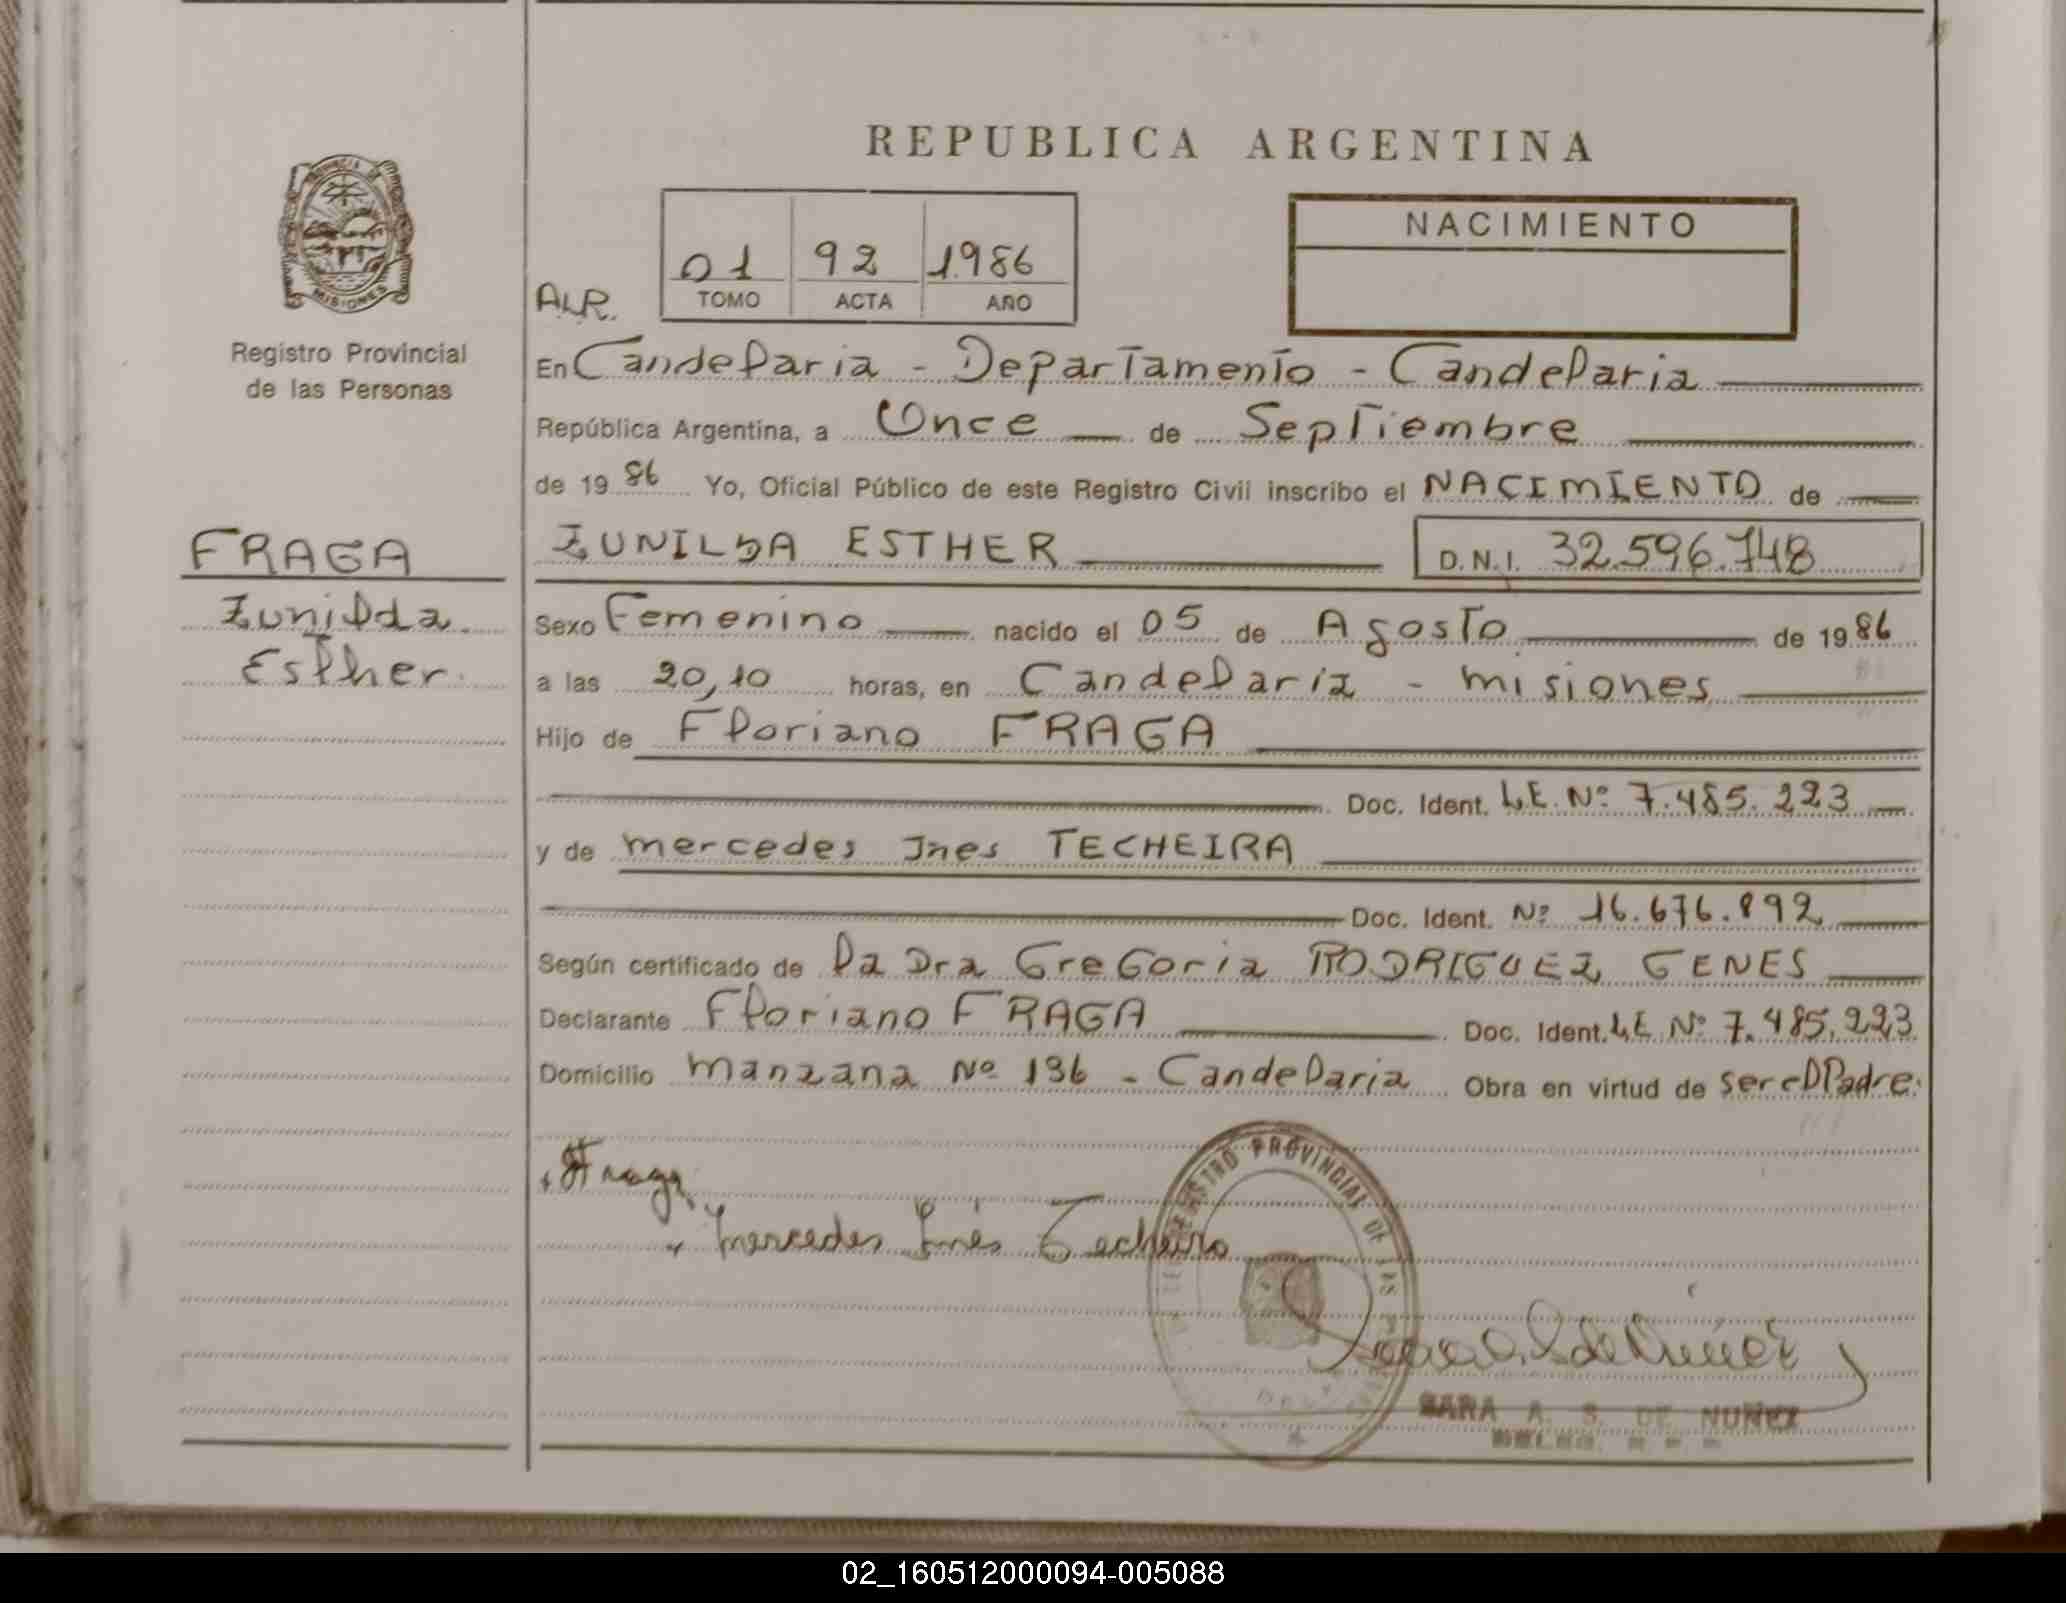 REPUBLICA ARGENTINA
PROVINCIA DE
MISIONES
Registro Provincial
de las Personas
01 92 1986
TOMO ACTA AÑO
NACIMIENTO
ALR.
En Candelaria - Departamento - Candelaria
República Argentina, a Once de Septiembre
de 1986 Yo, Oficial Público de este Registro Civil inscribo el NACIMIENTO de
FRAGA
Zunilda
Esther.
ZUNILDA ESTHER D.N.I. 32.596.748
Sexo Femenino nacido el 05 de Agosto de 1986
a las 20,10 horas, en Candelaria - misiones
Hijo de Floriano FRAGA
Doc. Ident. L.E. Nº 7.485.223
y de mercedes Ines TECHEIRA
Doc. Ident. Nº 16.676.892
Según certificado de la Dra GreGoria RODRIGUEZ GENES
Declarante Floriano FRAGA Doc. Ident. L.E. Nº 7.485.223
Domicilio manzana Nº 136 - Candelaria Obra en virtud de ser el Padre.
Fraga
mercedes Inés Techeira
REGISTRO PROVINCIAL DE LAS
SARA A. S. DE NUÑEZ
02_160512000094-005088